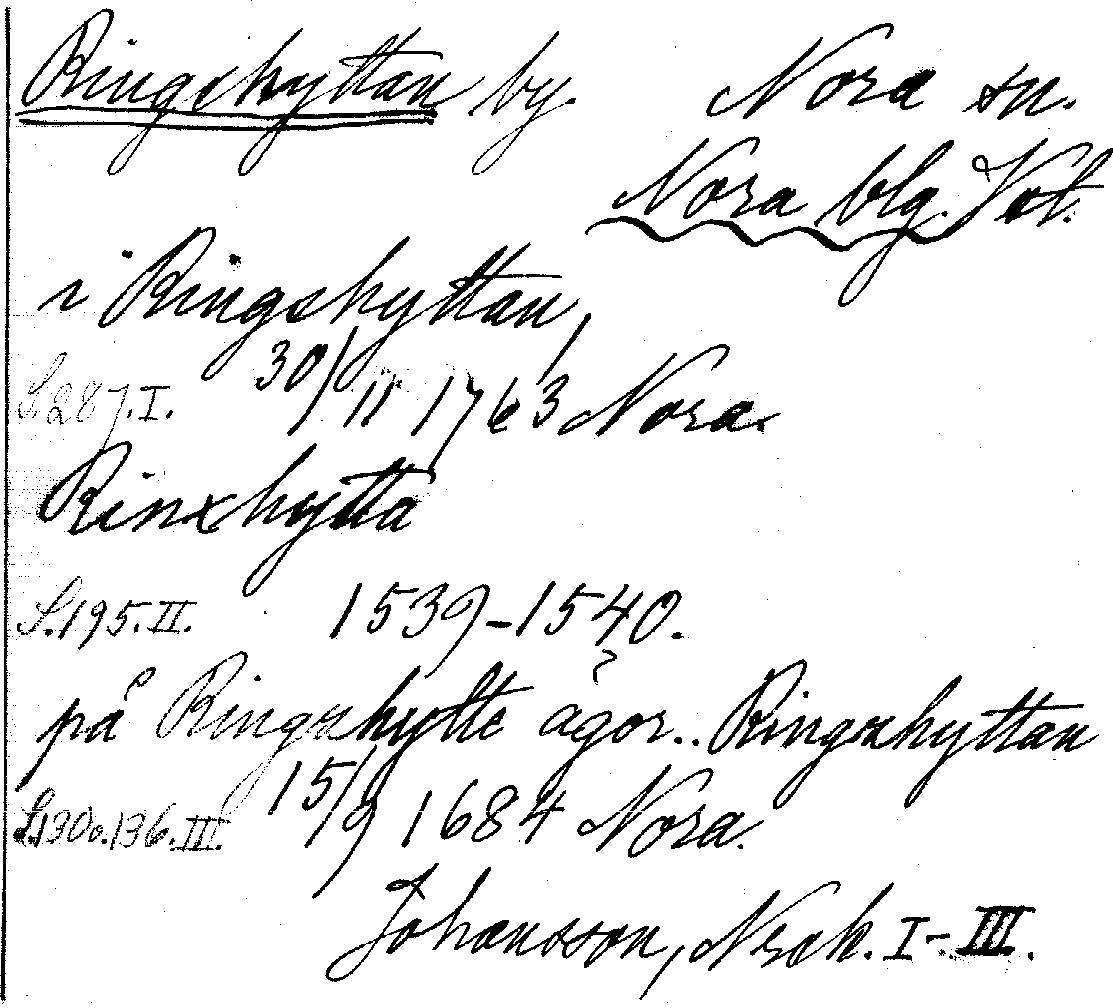 Ringshyttan by. Nora sn.
Nora blg. Vstl.
i Ringshyttan,
S. 287. I. 30/11 1763 Nora.
Rinxhytta
S. 195. II. 1539-1540.
på Ringzhytte ägor.. Ringzhyttan
S. 130 o. 136. III. 15/9 1684 Nora.
Johansson, Nrak. I-III.